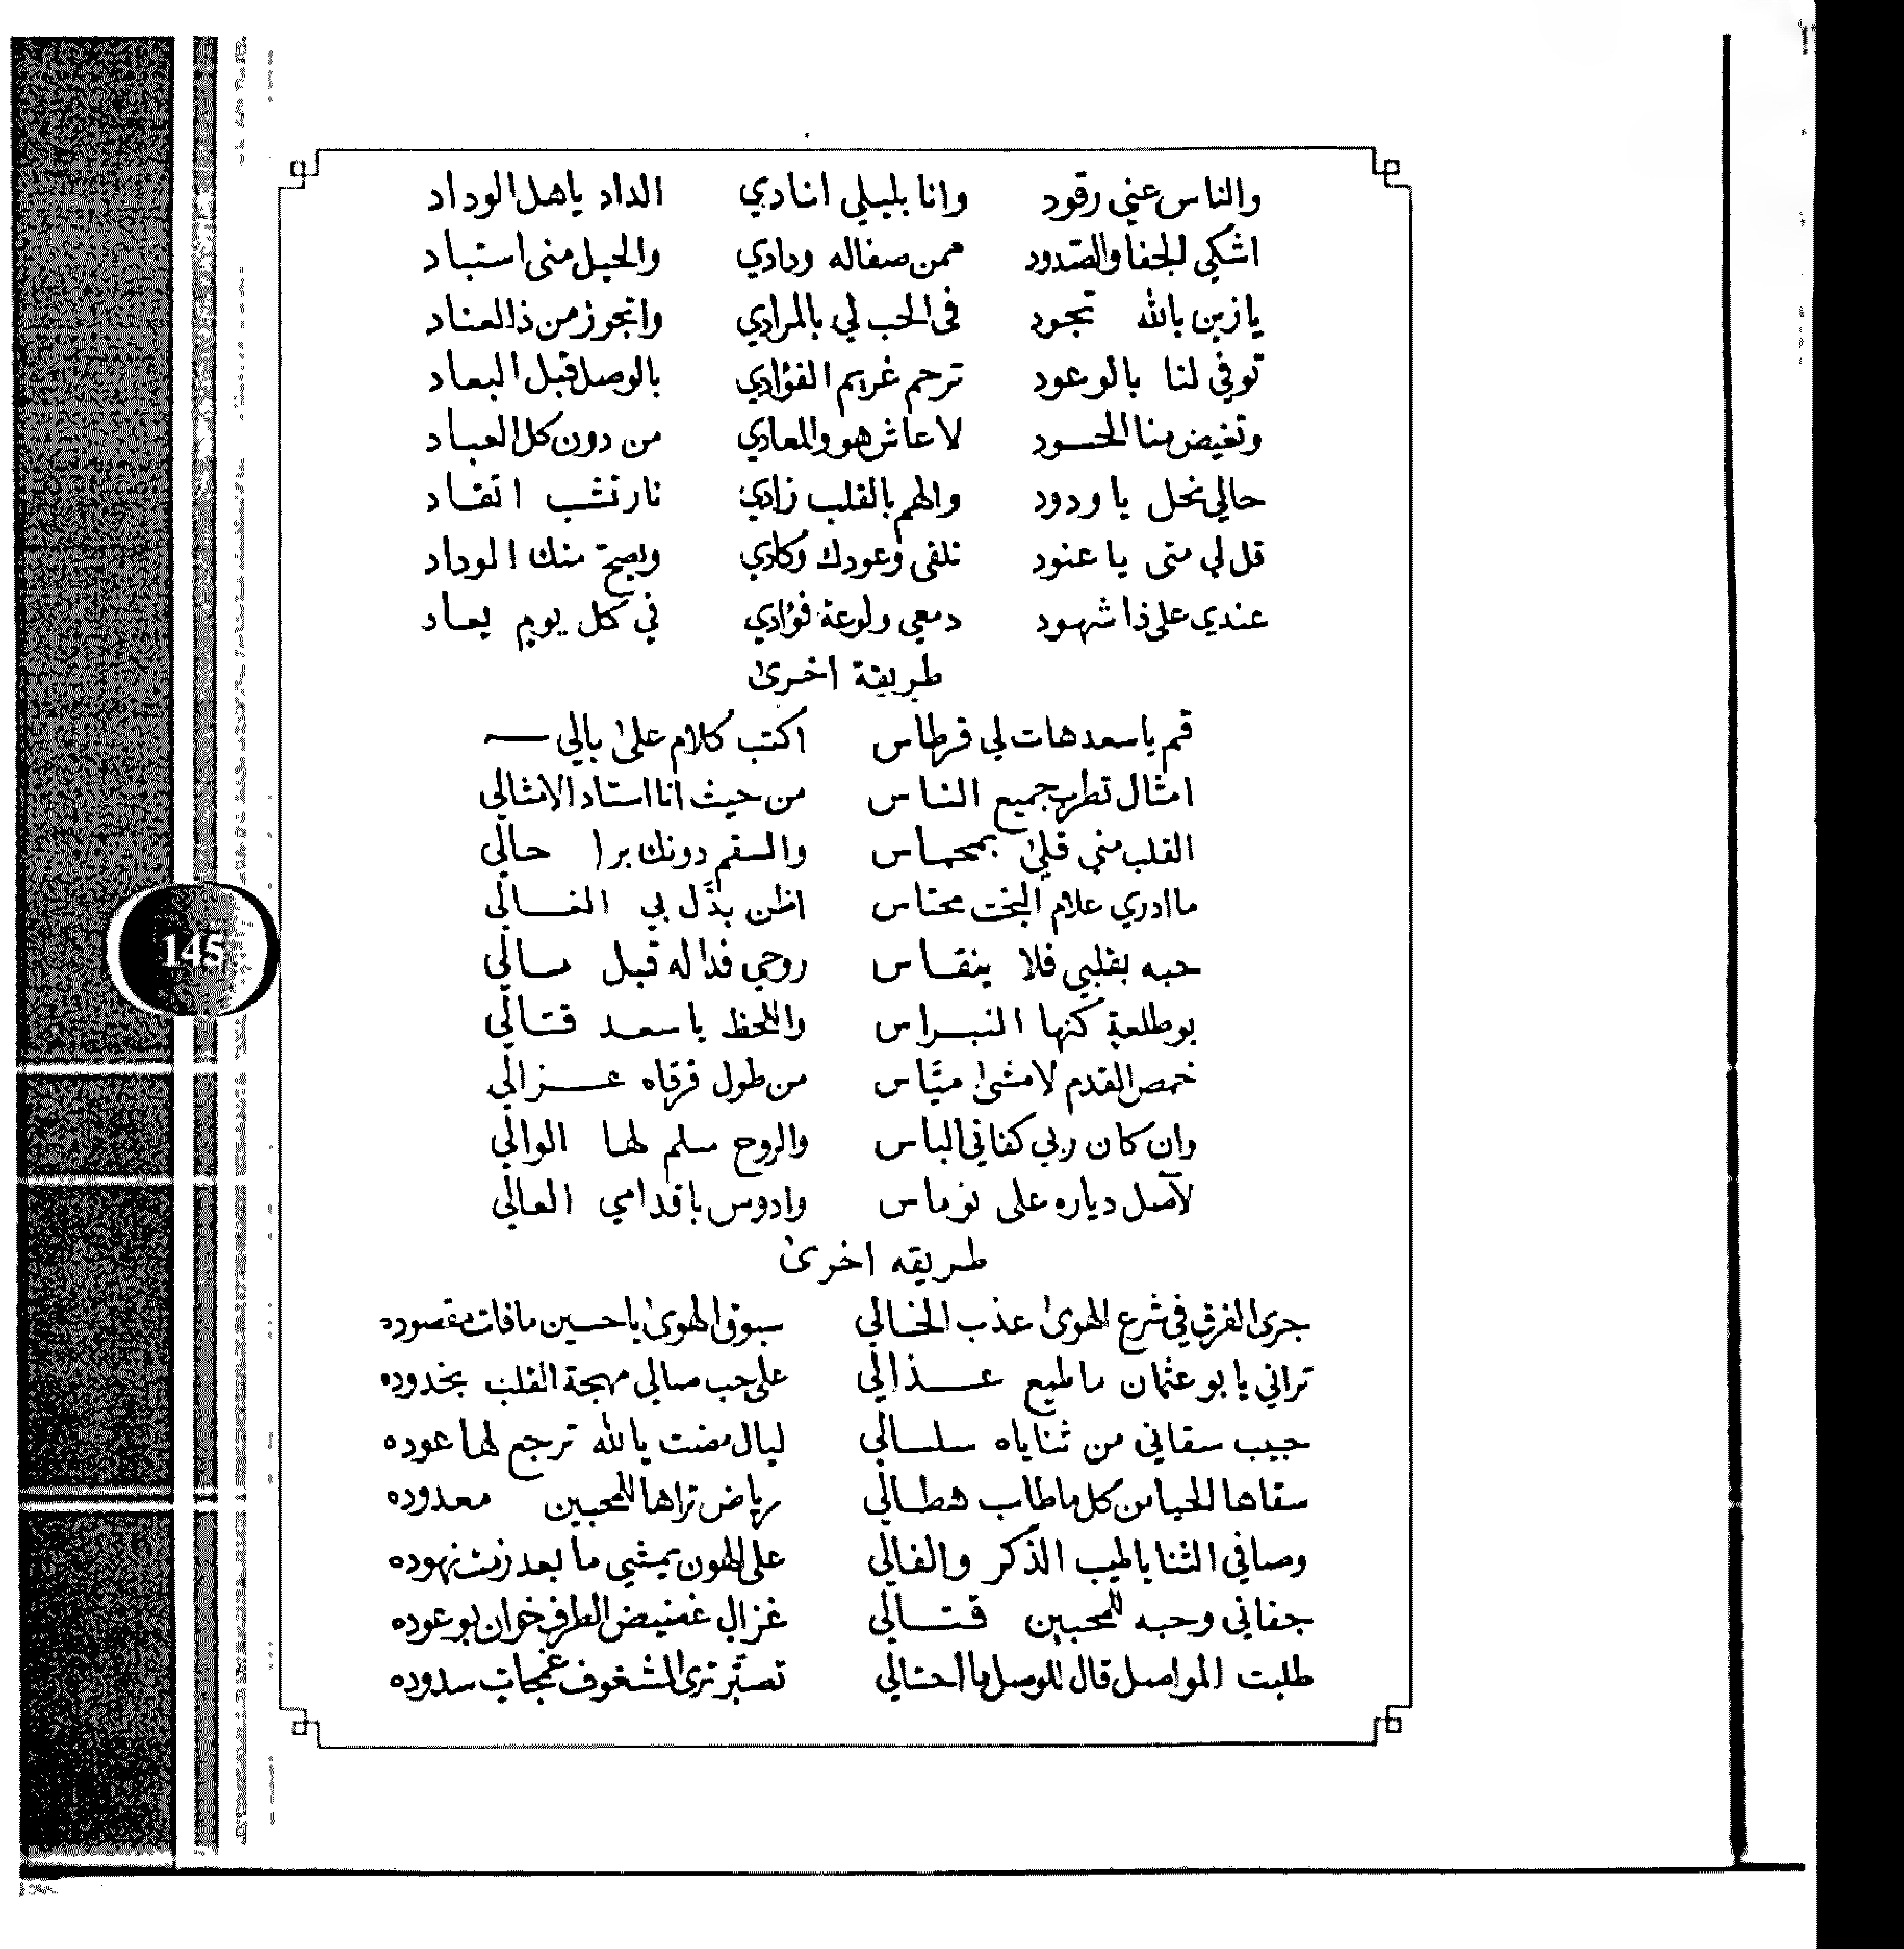 والناس عني رقود وانا بليلي انادي الداد ياهل الوداد
اشكي الجفا والصدود ممن صفاله ودادي والحيل مني استباد
يا زين بالله تجود في الحب لي بالمرادي واتجوز من ذا العناد
توفي لنا بالوعود ترحم غريم الفؤادي بالوصل قبل البعاد
وتغيض منا الحسود لا عاش هو والمعادي من دون كل العباد
حالي نحل يا ودود والهم بالقلب زادي نار تشب اتقاد
قل لي متى يا عنود تلفى وعودك وكادي ويصح منك الوداد
عندي على ذا شهود دمعي ولوعة فؤادي في كل يوم يعاد
طريقة اخرى
قم يا سعد هات لي قرطاس اكتب كلام على بالي
امثال تطرب جميع الناس من حيث انا استاد الامثالي
القلب مني قلي بمحماس والسقم دونك برا حالي
ما ادري علام البخت محتاس اظن بدّل بي الغالي
حبه بقلبي فلا ينقاس روحي فدا له قبل مالي
بو طلعة كنها النبراس واللحظ يا سعد قتالي
خمص القدم لا مشى ميّاس من طول فرقاه عزالي
وان كان ربي كفاني الباس والروح سلم لها الوالي
لآصل دياره على نوماس وادوس باقدامي العالي
طريقه اخرى
جرى الفرق في شرع الهوى عذب الخالي سبوق الهوى ياحسين مافات مقصوده
تراني يا بو عثمان ما طيع عذالي على حب صالي مهجة القلب بخدوده
حبيب سقاني من ثناياه سلسالي ليال مضت يالله ترجع لها عوده
سقاها الحيا من كل ماطاب هطالي رياض تراها للمحبين معدوده
وصافي الثنا ياطيب الذكر والفالي على الهون يمشي ما بعد زمت نهوده
جفاني وحبه للمحبين قتالي غزالي غضيض الطرف خوان بوعوده
طلبت المواصل قال للوصل ما احتالي تصبّر ترى المشغوف سدوده